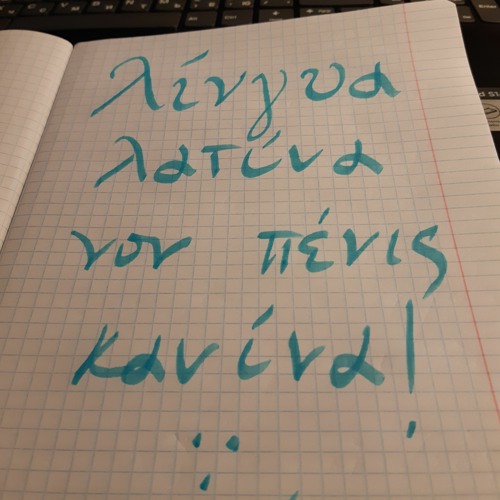 λίνγυα
λατίνα
νον πένις
κανίνα!